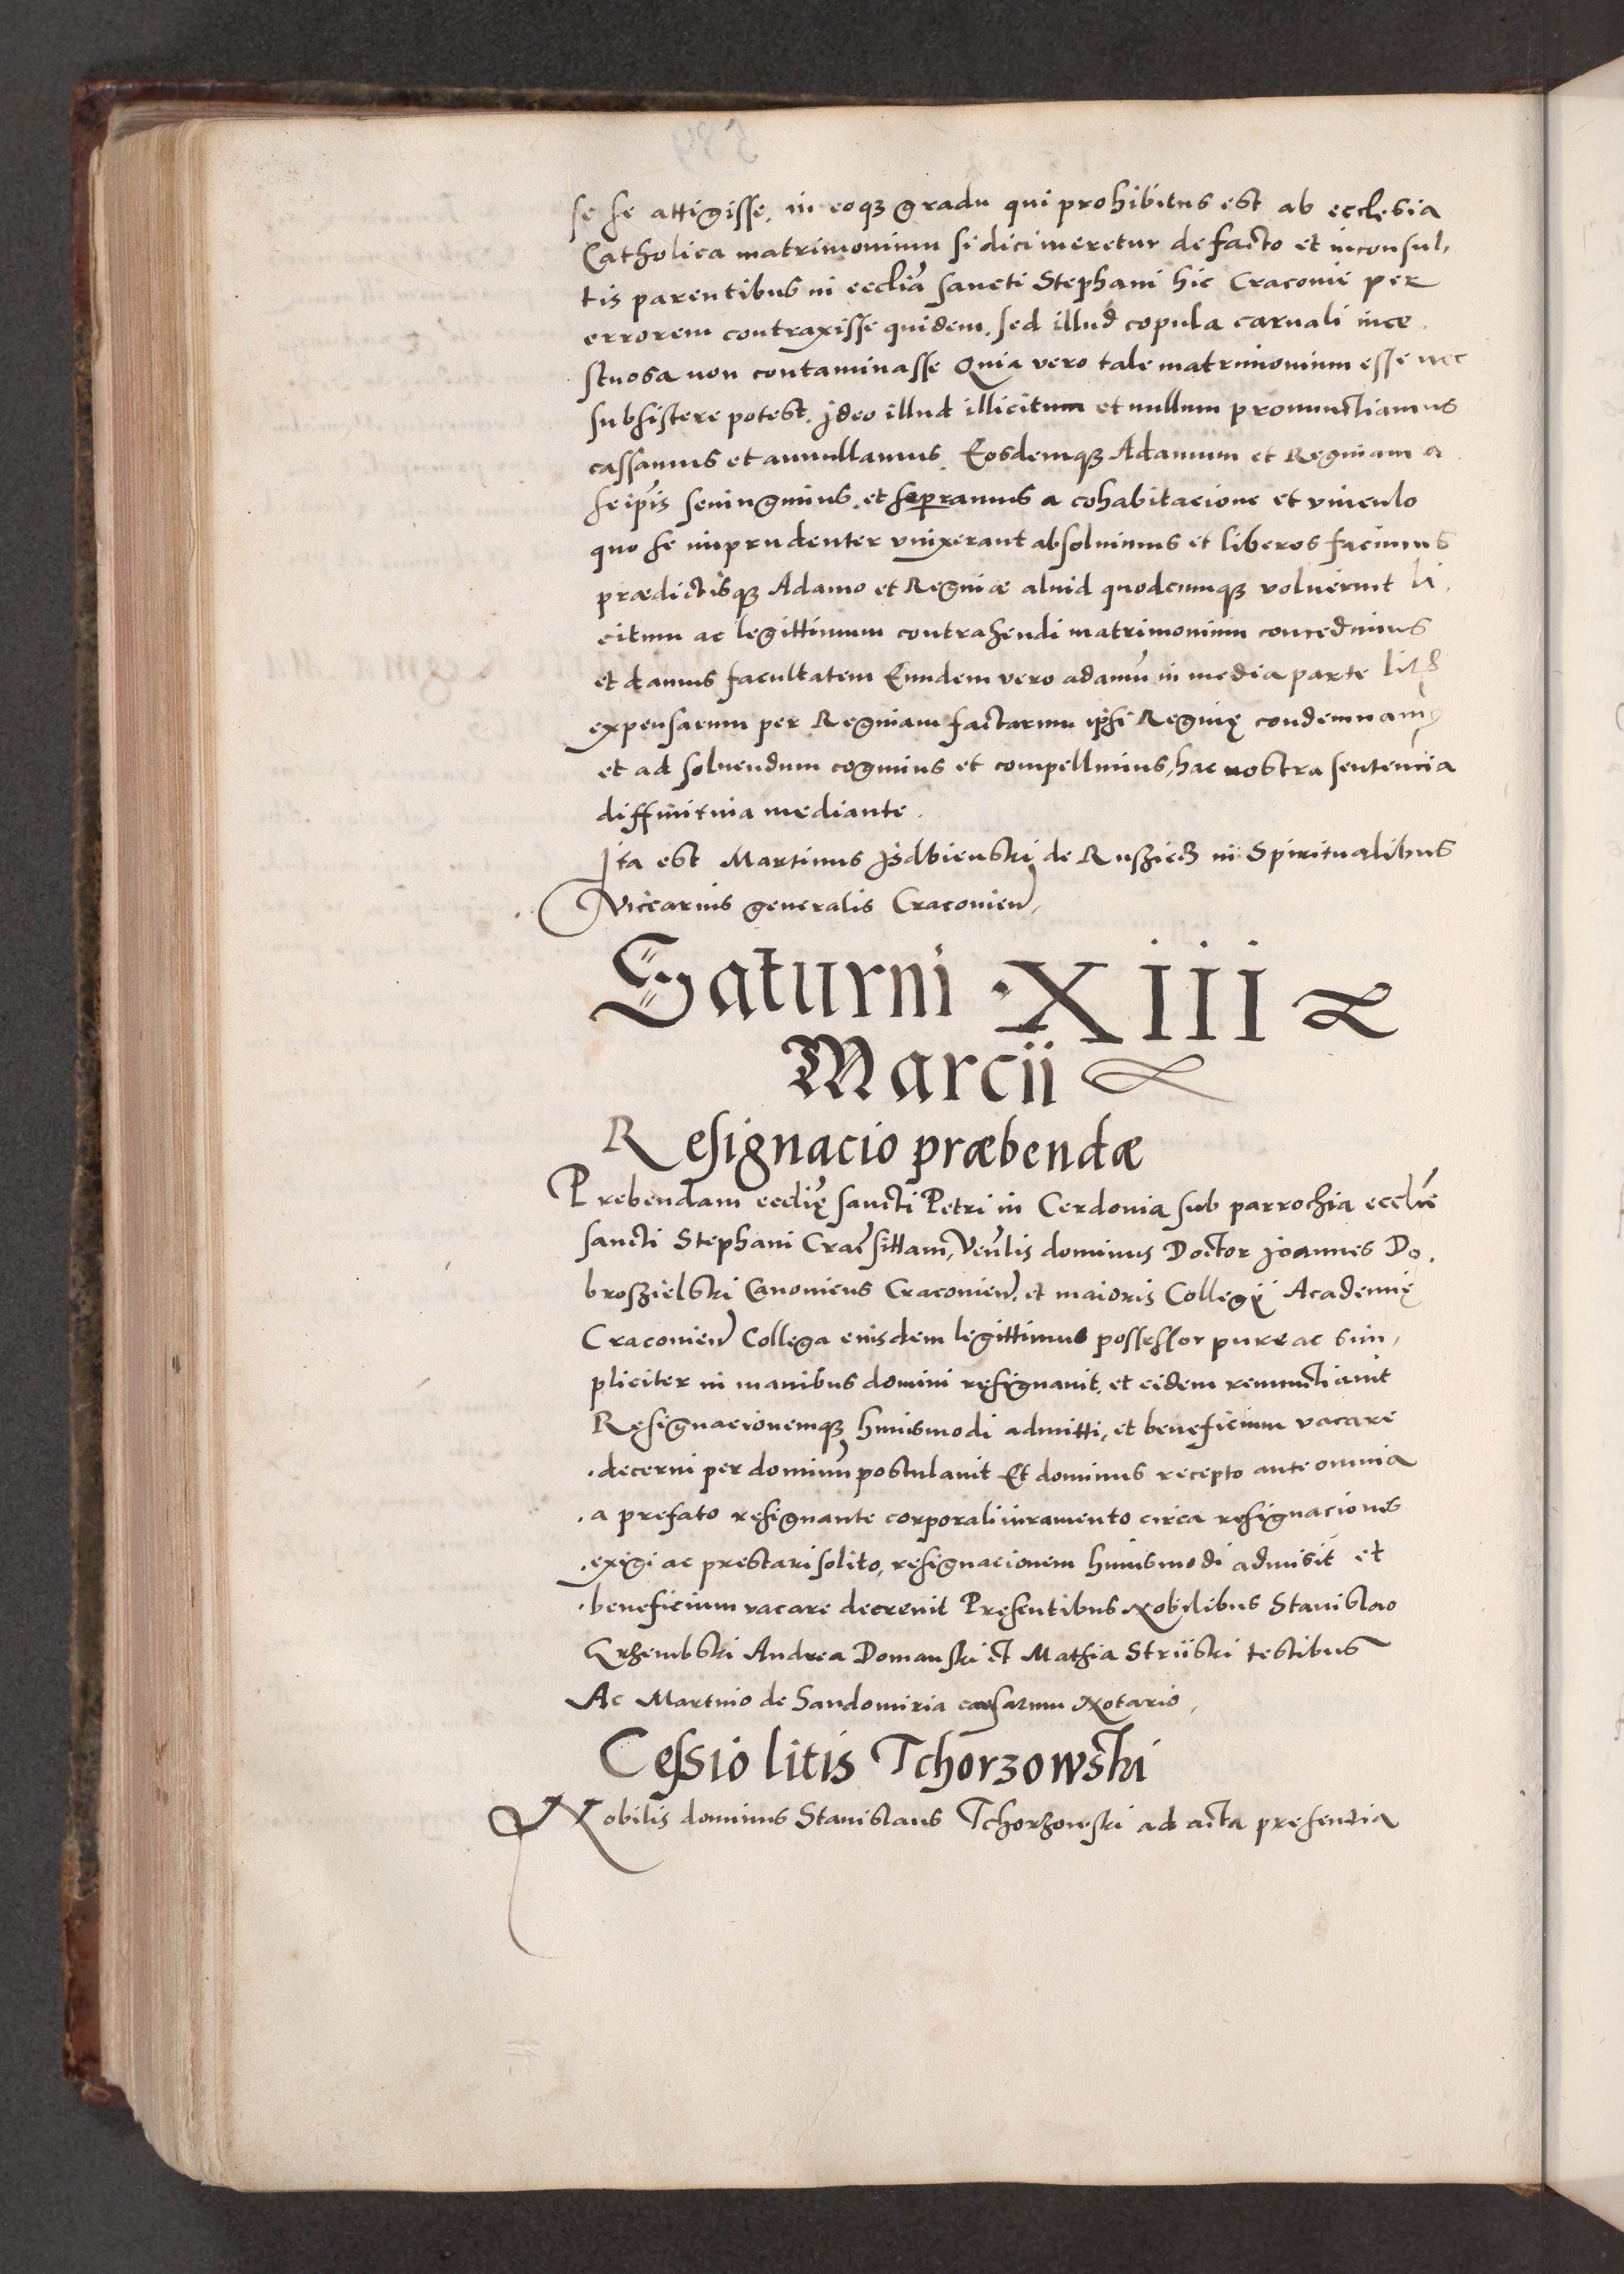 se se attigisse, in eoqz gradu qui prohibitus est ab ecclesia
Catholica matrimonium si dici meretur de facto et inconsul,
tis parentibus in eccliã sancti Stephani hic Cracovie per
errorem contraxisse quidem, sed illud copula carnali ince
stuosa non contaminasse Quia vero tale matrimonium esse nec
subsistere potest, ideo illud illicitum et nullum pronunctiamus
cassamus et annullamus, Eosdemqz Adamum et Reginam a
seip̃is seiungimus, et sepramus a cohabitacione et vinculo
quo se imprudenter vnixerant absolvimus et liberos facimus
prædictisqz Adamo et Reginæ aliud quodcumqz voluerint li,
citum ac legittimum contrahendi matrimonium concedimus
et damus facultatem Eundem vero adamũ in media parte
expensarum per Reginam factarum ip̃si Reginę condemnamꝰ
et ad solvendum cogimus et compellimus, hac nostra sentencia
diffinitiva mediante.
Ita est Martinus Isdbienski de Rusziecz in Spiritualibus
Vicarius generalis Cracovien̄
Saturni · XIII
Marcii
Resignacio præbendæ
Prebendam ecclię sancti Petri in Cerdonia sub parrochia ecclie
sancti Stephani Crac̃ sittam, Ven̄lis dominus Doctor Joannes Do,
broszielski Canonicus Cracovien̄. et maioris Collegii Academię
Cracovien̄ Collega eiusdem legittimus possessor pure ac sim,
pliciter in manibus domini resignavit, et eidem renunctiavit
Resignacionemqz huiusmodi admitti, et beneficium vacare
decerni per dominũ postulavit Et dominus recepto ante omnia
a prefato resignante corporali iuramento circa resignaciones
exigi ac prestari solito, resignacionem huiusmodi admisit et
beneficium vacare decrevit Presentibus Nobilibus Stanislao
Grzembski Andrea Domanski et Mathia Striiski testibus
Ac Martino de Sandomiria causarum Notario,
Cessio litis Tchorzowski
Nobilis dominus Stanislaus Tchorzowski ad acta presencia